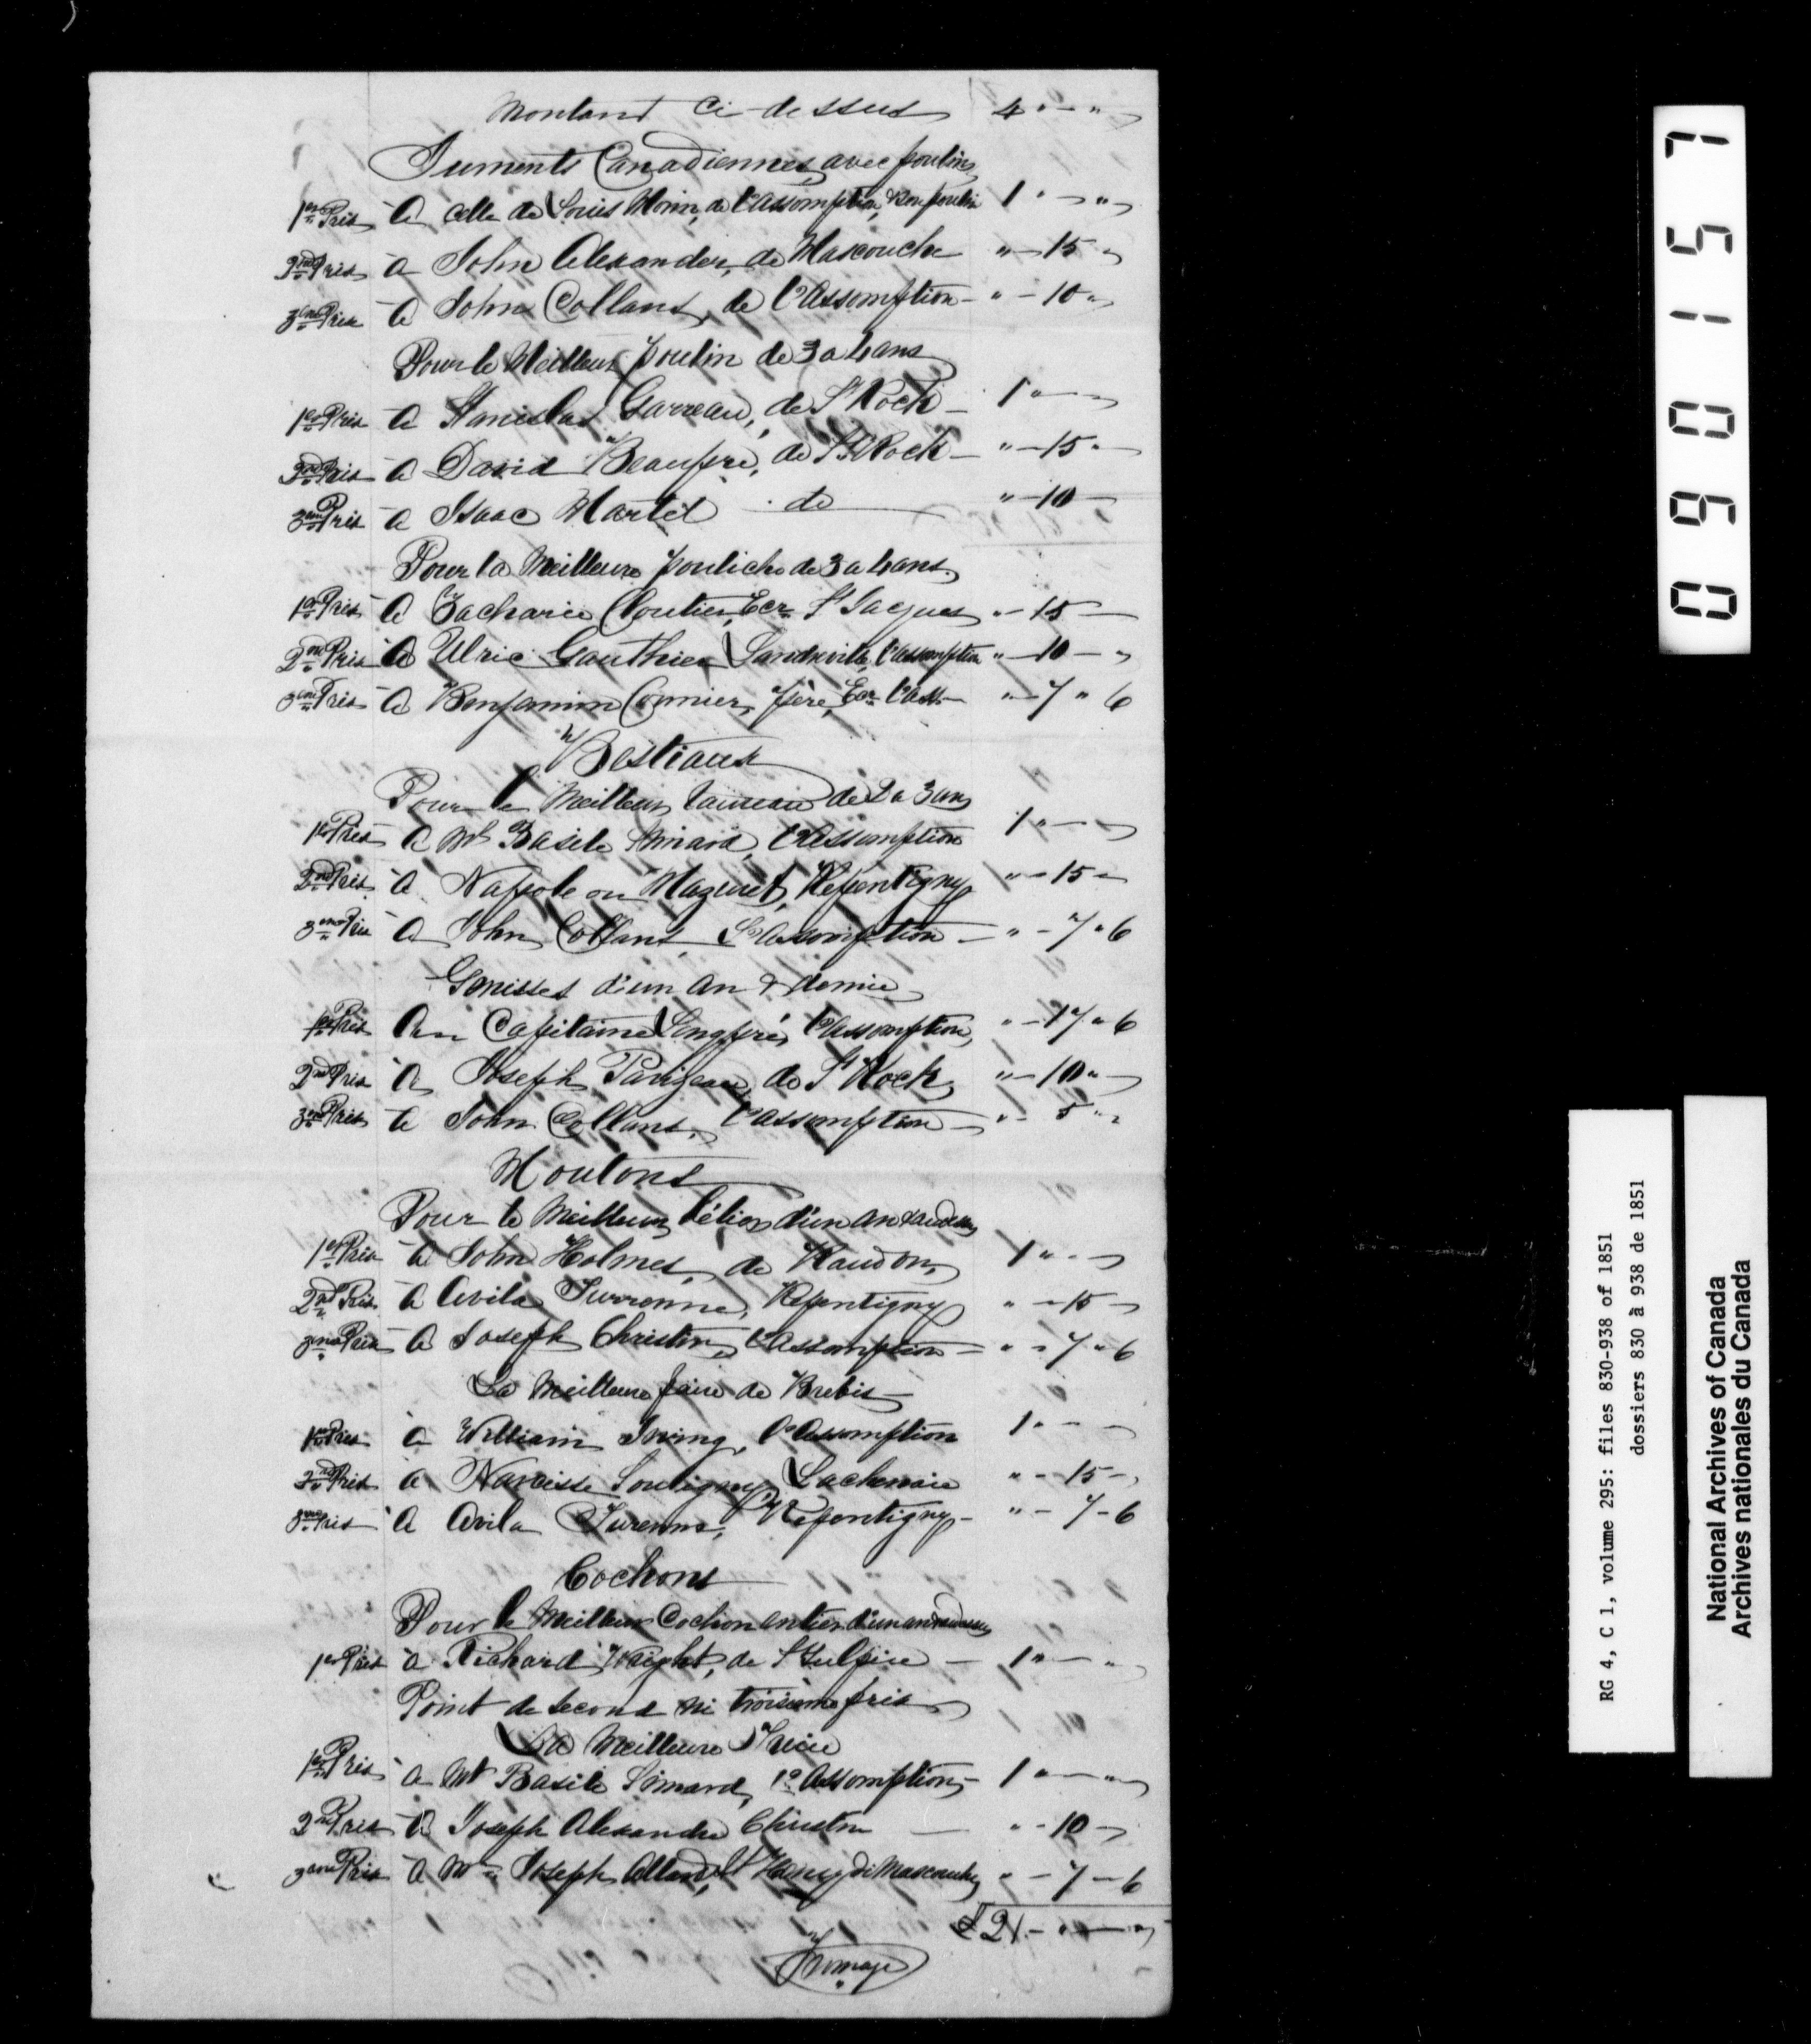 Montant Ci-dessus 4 " — "
Juments Canadiennes, avec poulins
1er Prix A celle de Louis Morin, de l'Assomption, & son poulin 1 " — "
2nd Prix à John Alexander, de Mascouche " — 15 "
3eme Prix à John Collans, de l'Assomption — " — 10 "
Pour le Meilleur poulin de 3 a 4 ans
1er Prix à Stanislas Garreau, de St Roch — 1 " —
2nd Prix à David Beaupré, de St Roch — " — 15 "
3eme Prix à Isaac Martel do " — 10 —
Pour la Meilleure pouliche de 3 a 4 ans
1er Prix à Zacharie Cloutier, Ecr St Jacques " — 15 —
2nd Prix à Ulric Gauthier l'assomption " — 10 — "
3eme Prix à Benjamin père, Ecr l'Ass— " — 7 " 6
Bestiaux
Pour le Meilleur taureau de 2 a 3 ans
1er Prix à Mr Basile Simard, l'Assomption 1 " —
2nd Prix à Napoleon Mazuret, Repentigny " — 15 —
3eme Prix à John Collans L'Assomption — " — 7 " 6
Genisses d'un an & demie
1er Prix Au Capitaine Longpré, l'assomption, " — 17 " 6
2nd Prix à Joseph Parizeau, de St Roch " — 10 " —
3eme Prix à John Collans, l'assomption — " — 5 " "
Moutons
Pour le Meilleur bélier d'un an & audessus
1er Prix à John Holmes, de Rawdon, 1 " —
2nd Prix à Avila Turrenne, Repentigny " — 15 —
3eme Prix à Joseph Christin, l'Assomption — " — 7 " 6
La Meilleure paire de Brebis —
1er Prix à William Irving, l'Assomption 1 " — —
2nd Prix à Narcisse Souligny Lachenaie " — 15 —
3eme Prix à Avila Turenne, Repentigny — " — 7 - 6
Cochons
Pour le Meilleur Cochon antier d'un an & audessus
1er Prix à Richard Wright, de St Sulpice — 1 " — "
Point de second ni troisieme prix
La Meilleure Truie
1er Prix à Mr Basile Simard, l'Assomption, — 1 " — "
2nd Prix à Joseph Alexandre Christin — " — 10 —
3eme Prix à Joseph Allard, St Henry de Mascouche, " — 7 — 6
£ 21 — " — "
0901571
RG 4, C 1, volume 295: files 830-938 of 1851
dossiers 830 à 938 de 1851
National Archives of Canada
Archives nationales du Canada